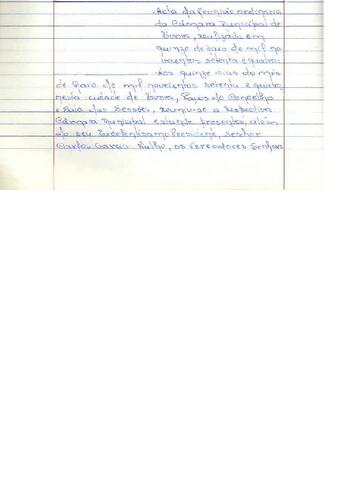 Acta da Reunião ordinária
da Câmara Municipal de
Évora, realizada em
quinze de Maio de mil no
vecentos setenta e quatro:
Aos quinze dias do mês
de Maio de mil novecentos setenta e quatro,
nesta cidade de Évora, Paços do Concelho
e Sala das Sessões, reuniu-se a respectiva
Câmara Municipal estando presentes, além
do seu Excelentíssimo Presidente, senhor
Carlos Garcia, os Vereadores Senhores